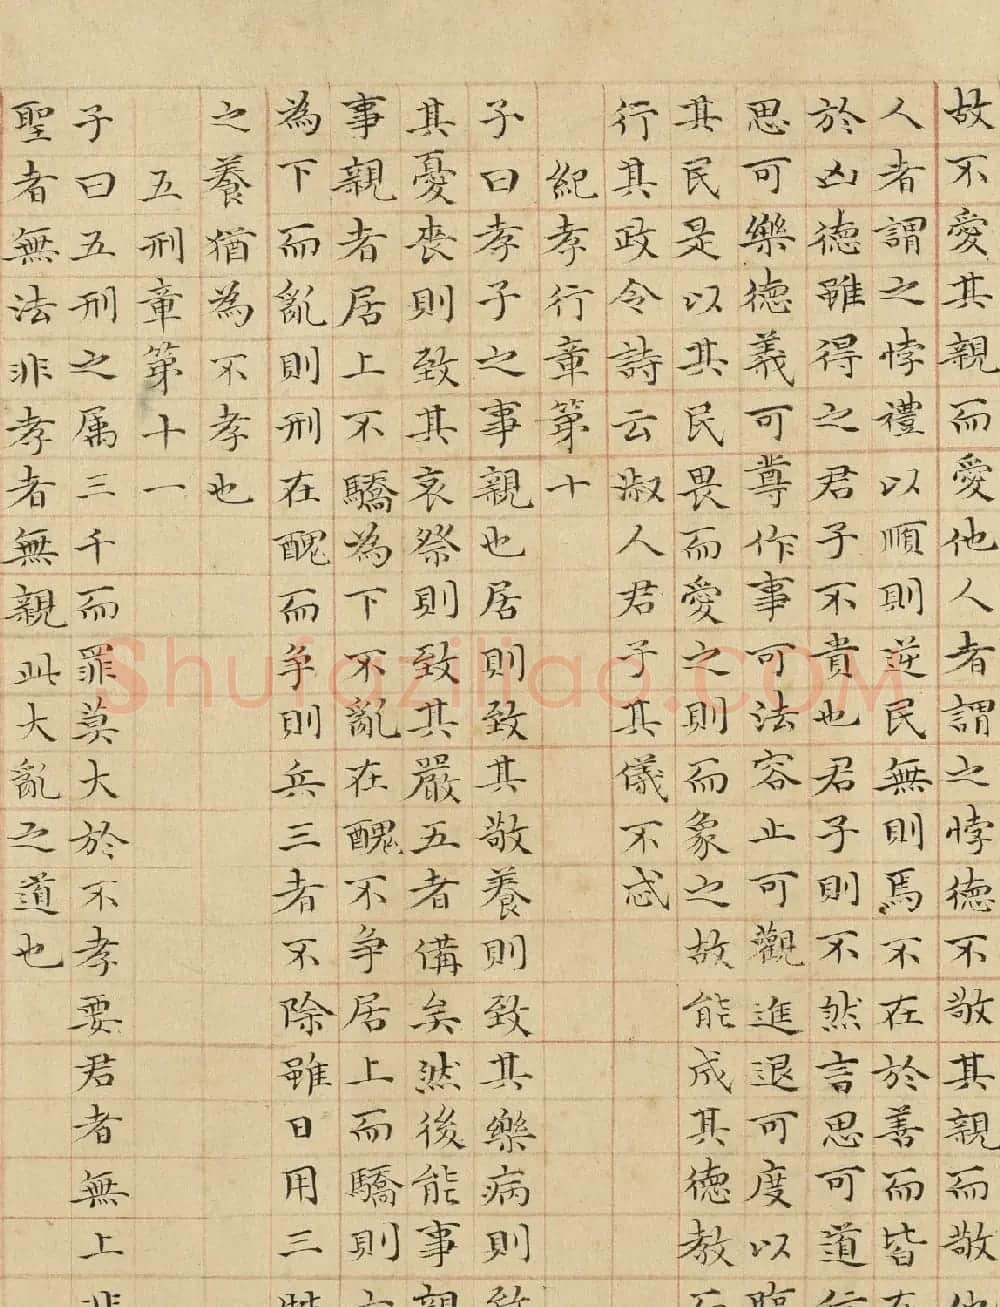 故不愛其親而愛他人者謂之悖德不敬其親而敬
人者謂之悖禮以順則逆民無則焉不在於善而皆
於凶德雖得之君子不貴也君子則不然言思可道行
思可樂德義可尊作事可法容止可觀進退可度以臨
其民是以其民畏而愛之則而象之故能成其德教
行其政令詩云淑人君子其儀不忒
紀孝行章第十
子曰孝子之事親也居則致其敬養則致其樂病則致
其憂喪則致其哀祭則致其嚴五者備矣然後能事親
事親者居上不驕為下不亂在醜不争居上而驕則
為下而亂則刑在醜而争則兵三者不除雖日用三
之養猶為不孝也
五刑章第十一
子曰五刑之属三千而罪莫大於不孝要君者無上非
聖者無法非孝者無親此大亂之道也
Shufaziliao.COM